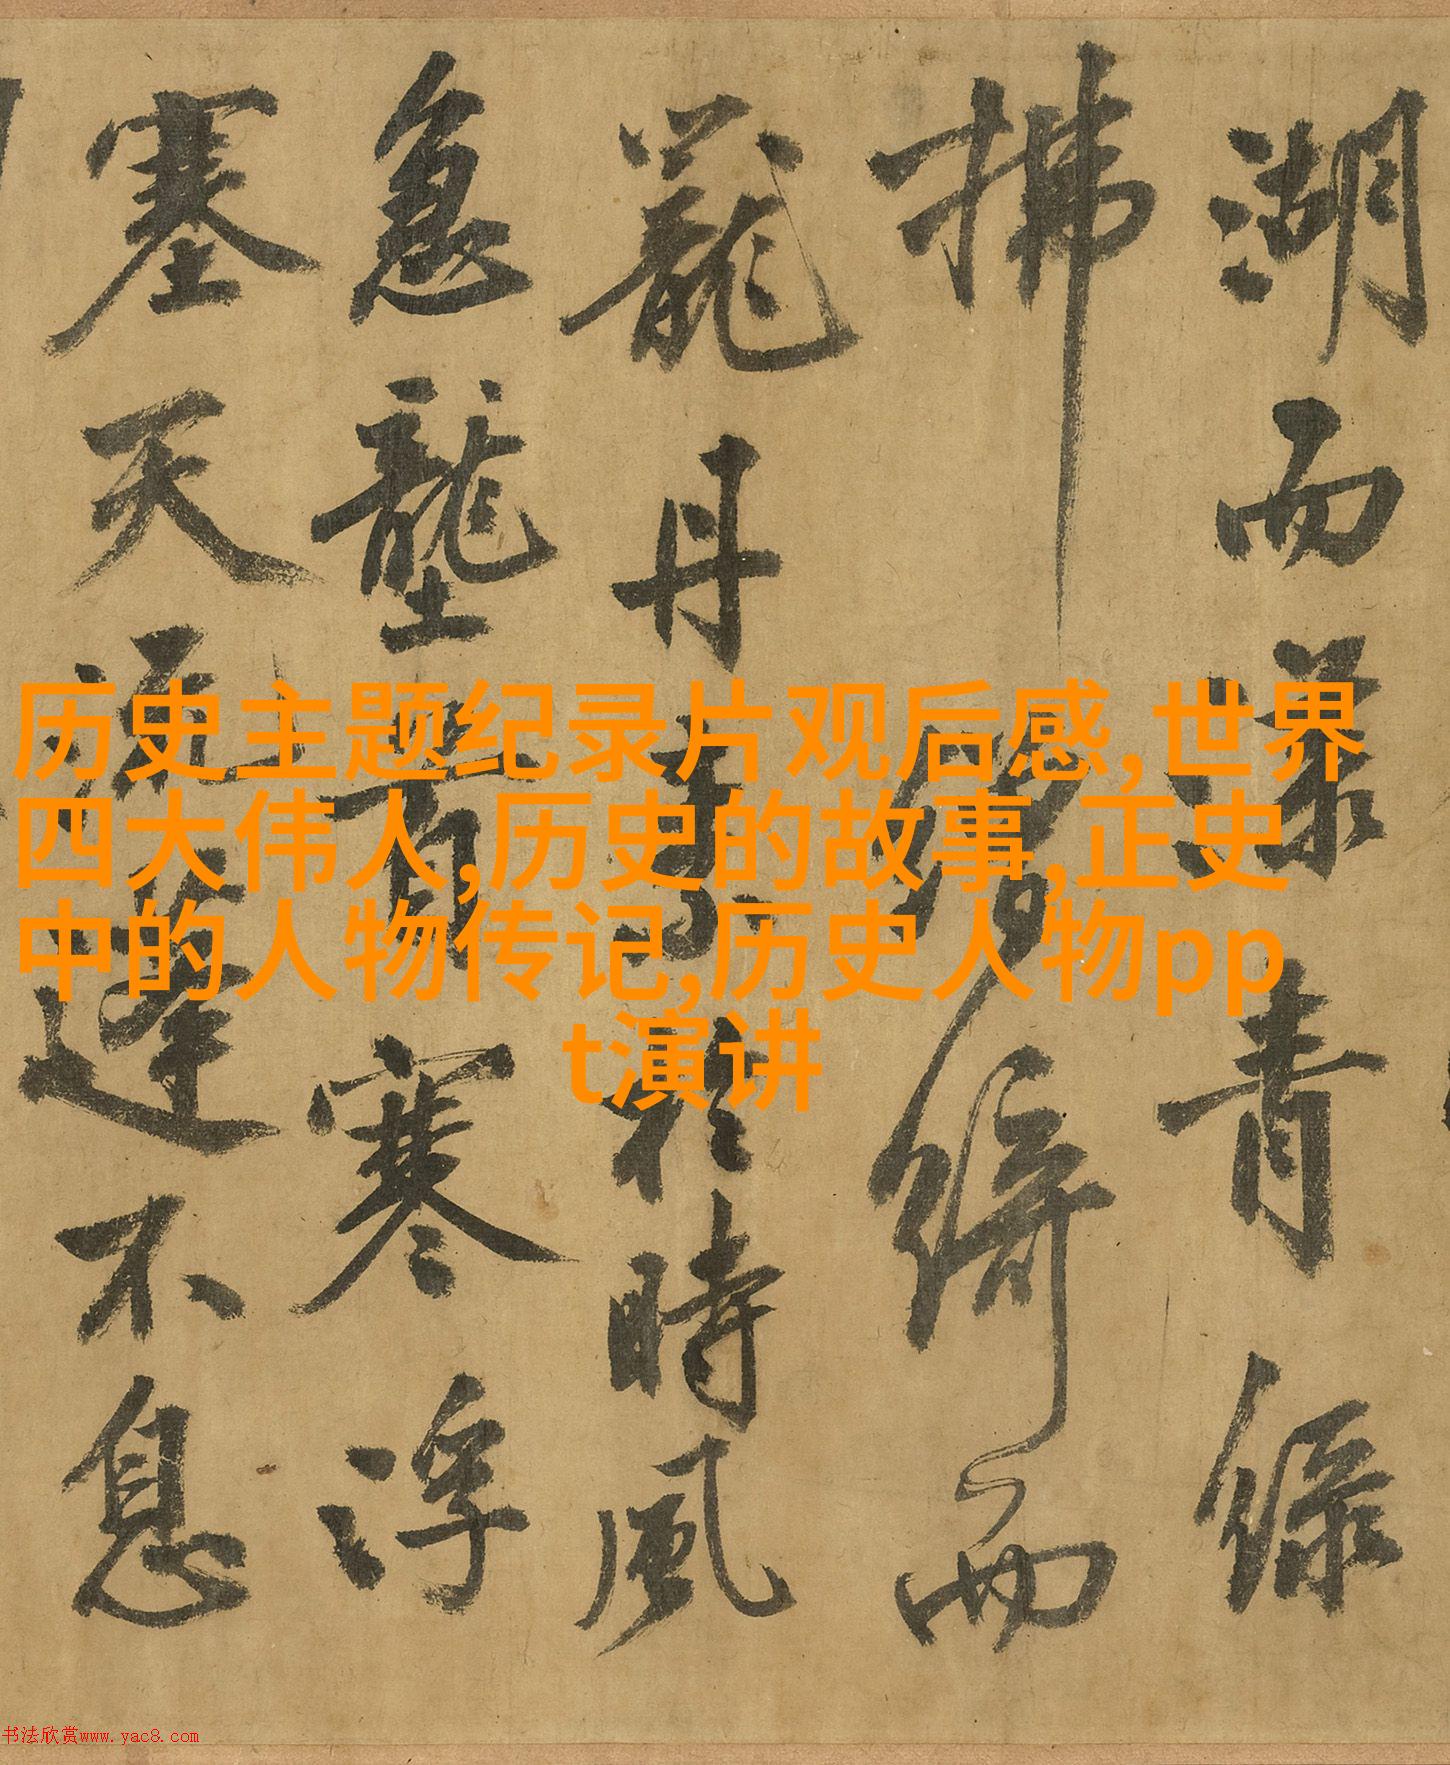 湖而青綠
拂綺而
丹於時風
急壟首寒浮
塞天蓬不息
历史主题纪录片观后感,世界
四大伟人,历史的故事,正史
中的人物传记,历史人物pp
t演讲
书法欣赏www.yac8.com